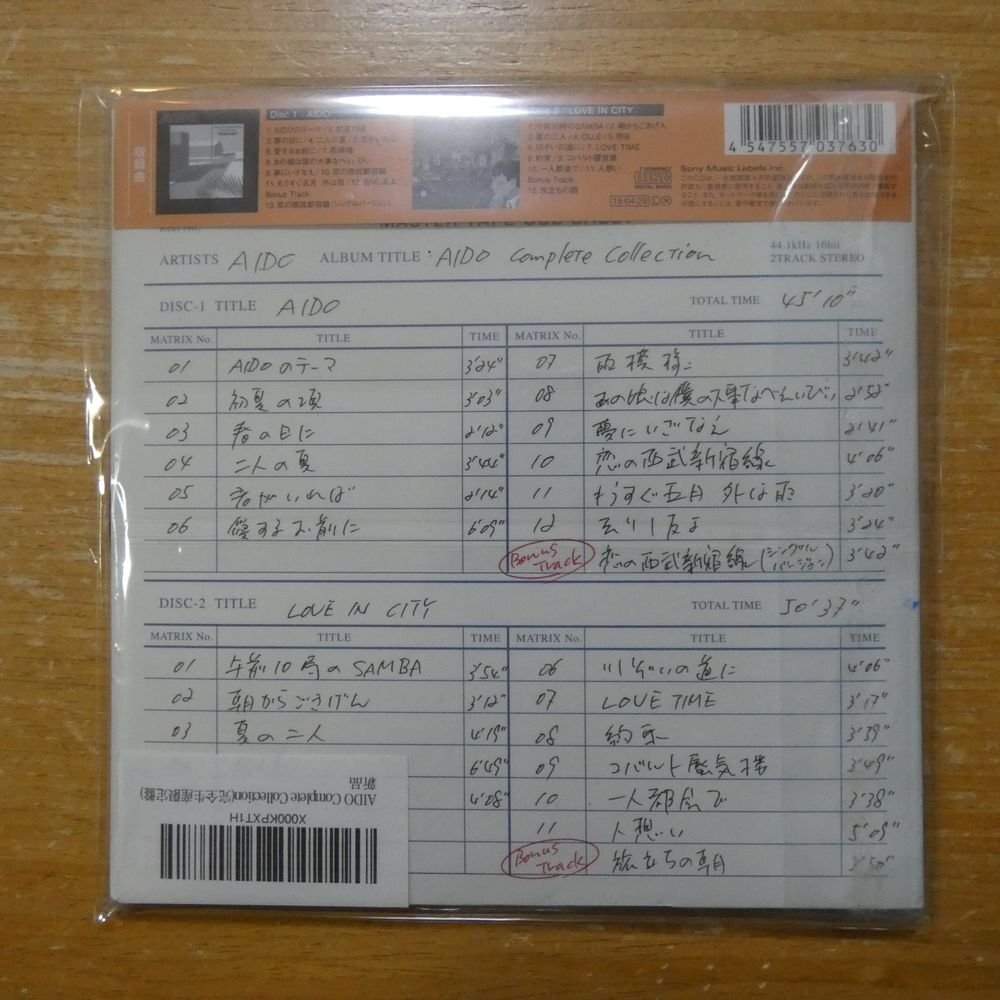 収録曲
Disc 1 : AIDO
1. AIDOのテーマ/2. 初夏の頃
3. 春の日に/4. 二人の夏/5. 君がいれば
6. 愛するお前に/7. 雨模様
8. あの娘は僕の大事なべんいびい
9. 夢にいざなえ/10. 恋の西武新宿線
11. もうすぐ五月 外は雨/12. 去りし友よ
Bonus Track
13. 恋の西武新宿線(シングルバージョン)
: LOVE IN CITY
1. 午前10時のSAMBA/2. 朝からごきげん
3. 夏の二人/4. OLLE/5. 明日
6. 川ぞいの道に/7. LOVE TIME
8. 約束/9. コバルト蜃気楼
10. 一人都会で/11. 人想い
Bonus Track
12. 旅立ちの朝
COMPACT disc DIGITAL AUDIO
15・04・29 L X
4 547557 037630
Sony Music Labels Inc.
MASTER TAPE CUE SHEET
ARTISTS AIDO ALBUM TITLE : AIDO Complete Collection
44.1kHz 16bit
2TRACK STEREO
DISC-1 TITLE AIDO TOTAL TIME 45'10"
MATRIX No. TITLE TIME MATRIX No. TITLE TIME
01 AIDOのテーマ 3'24" 07 雨模様 3'42"
02 初夏の頃 3'03" 08 あの娘は僕の大事なべんいびい 2'52"
03 春の日に 2'12" 09 夢にいざなえ 2'41"
04 二人の夏 3'44" 10 恋の西武新宿線 4'06"
05 君がいれば 2'14" 11 もうすぐ五月 外は雨 3'20"
06 愛するお前に 6'09" 12 去りし友よ 3'24"
Bonus Track 恋の西武新宿線(シングルバージョン) 3'42"
DISC-2 TITLE LOVE IN CITY TOTAL TIME 50'37"
MATRIX No. TITLE TIME MATRIX No. TITLE TIME
01 午前10時のSAMBA 3'54" 06 川ぞいの道に 4'06"
02 朝からごきげん 3'12" 07 LOVE TIME 3'17"
03 夏の二人 4'19" 08 約束 3'39"
6'49" 09 コバルト蜃気楼 3'49"
4'08" 10 一人都会で 3'38"
11 人想い 5'09"
Bonus Track 旅立ちの朝 3'50"
X000KPXT1H
AIDO Complete Collection(完全生産限定盤)
新品